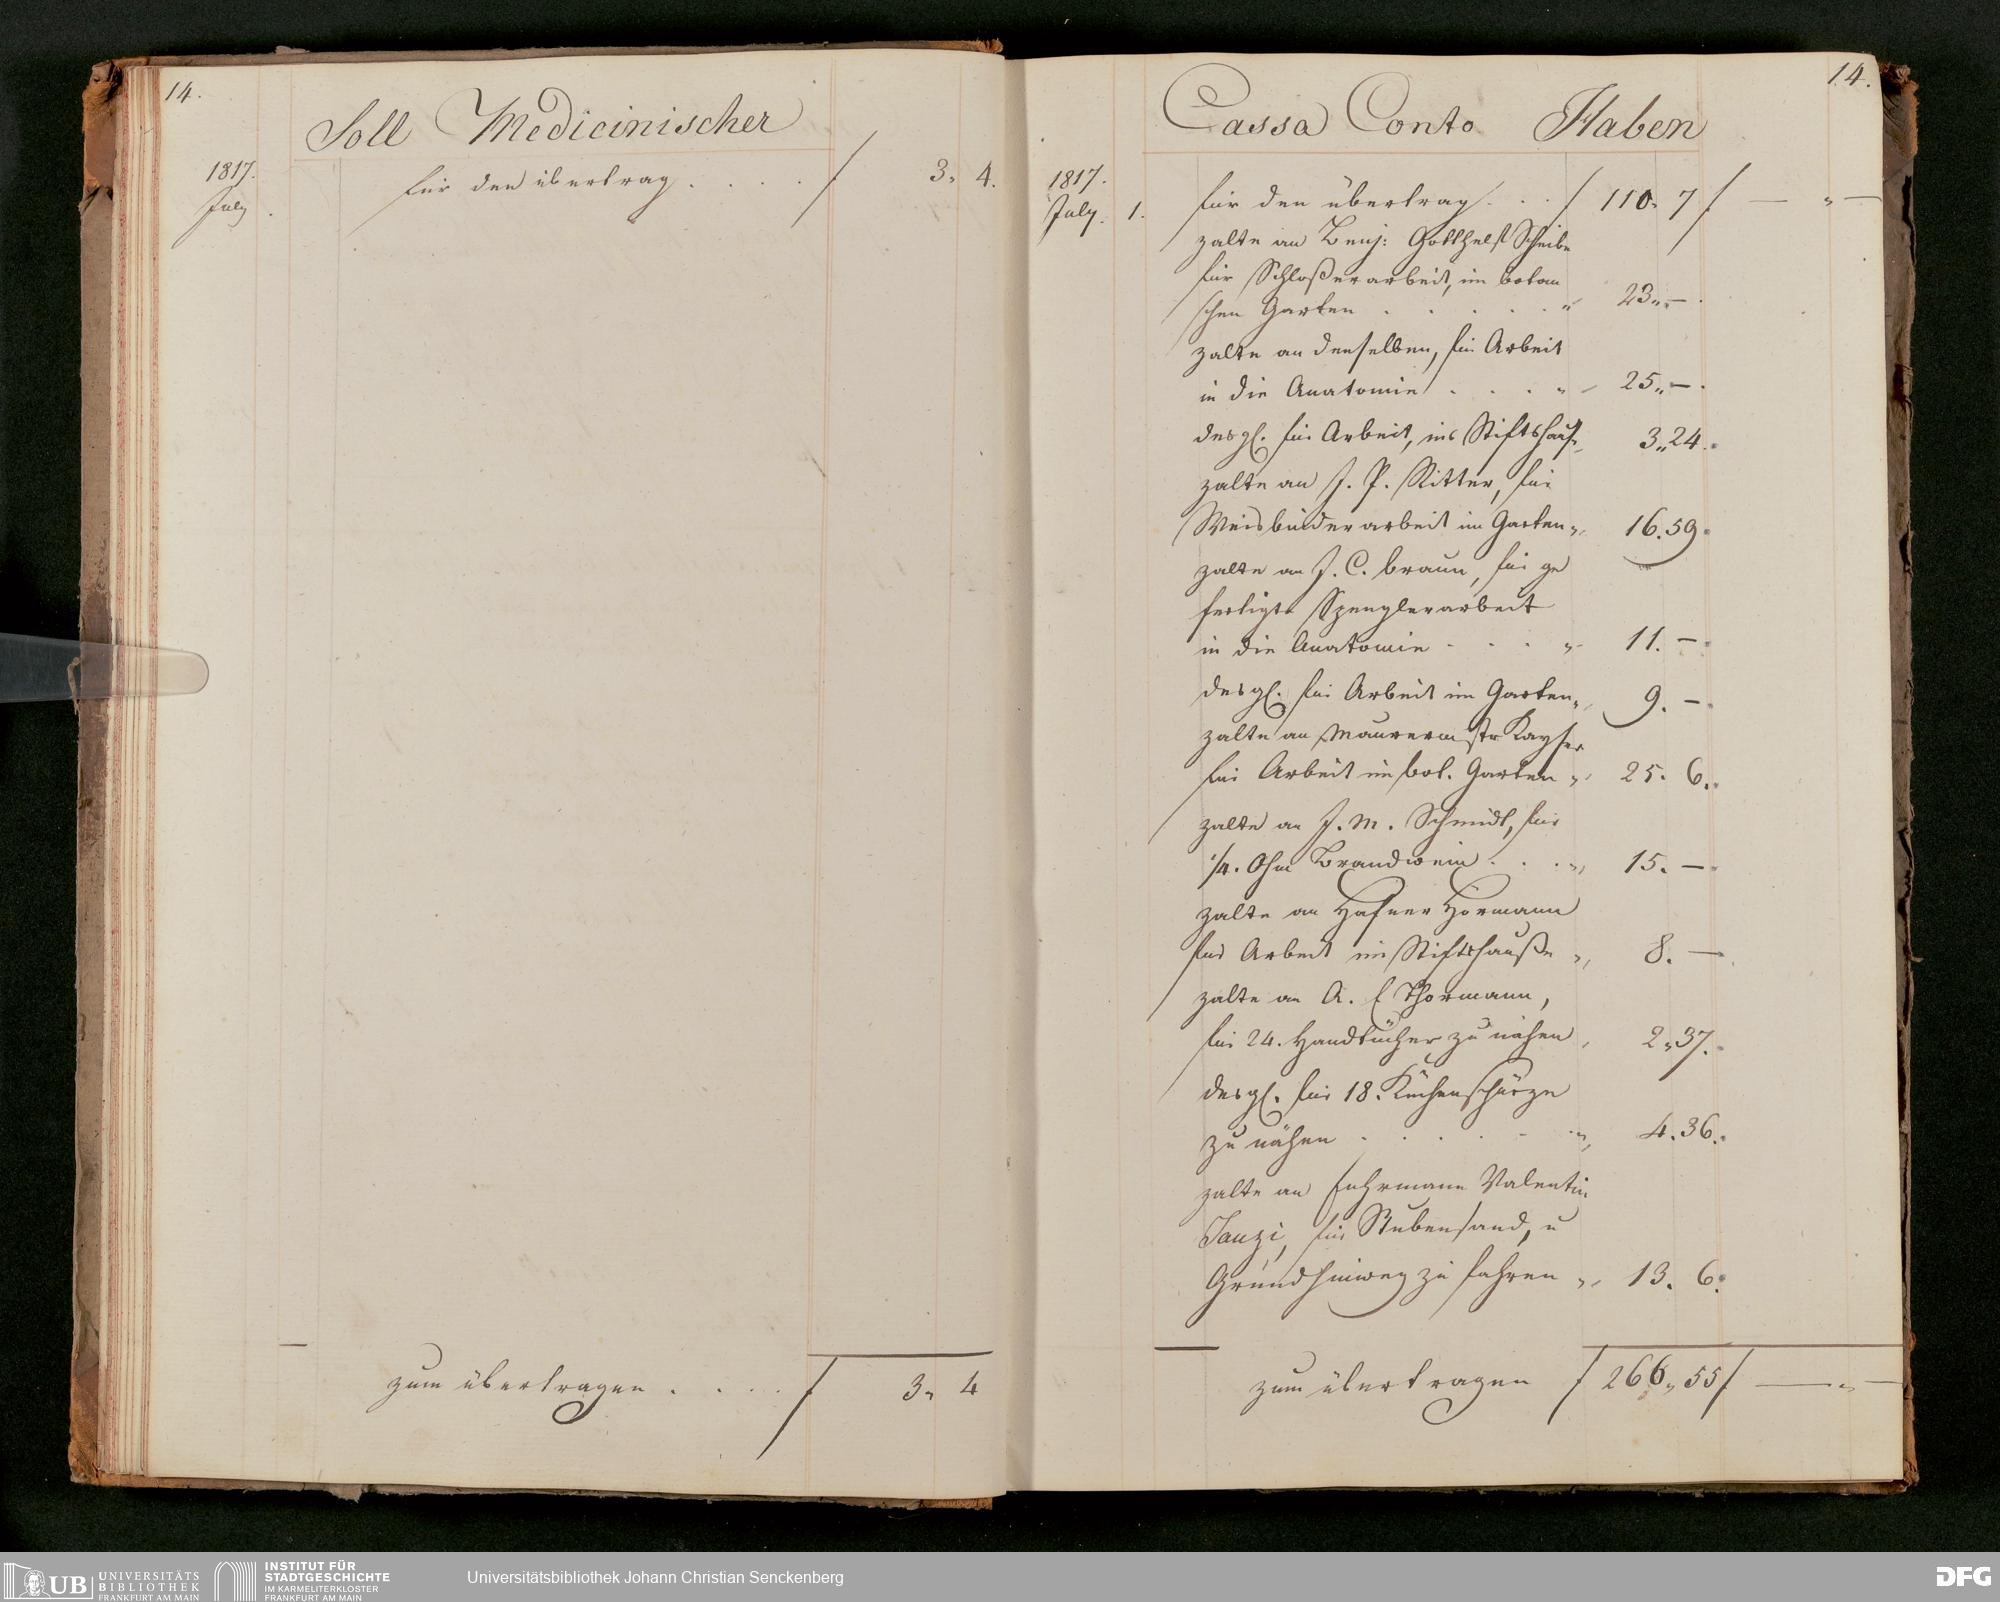 14.
Soll Medicinischer
1817.
July.
für den übertrag . . . . f 3„ 4.
zum übertragen . . . . f 3„ 4
14.
Cassa Conto Haben
1817.
July. 1.
für den übertrag . . f 110„ 7 f — „ —
zalte an Benj: Gotthelf Scheibe
für Schloßerarbeit, im botan
schen Garten . . . . . „ 23„ —.
zalte an denselben, für Arbeit
in die Anatomie . . . „ 25„ —.
desgl. für Arbeit, ins Stiftshauß „ 3„ 24.
zalte an J. P. Ritter, für
Weisbinderarbeit im Garten „ 16. 59.
zalte an J. C. Braun, für ge
fertigte Spenglerarbeit
in die Anatomie . . . „ 11. —
desgl. für Arbeit im Garten „ 9. —
zalte an Maurermstr Kayser
für Arbeit im bot. Garten „ 25. 6.
zalte an J. M. Schmidt, für
1/4. Ohm Brandwein . . . „ 15. —
zalte an Hafner Hörmann
für Arbeit im Stiftshauße „ 8. —
zalte an A. E Thormann,
für 24. Handtücher zu nähen „ 2„ 37.
desgl. für 18. Küchenschürze
zu nähen . . . . . „ 4. 36.
zalte an Fuhrmann Valentin
für Stubensand, u
Grund hinweg zu fahren „ 13. 6.
zum übertragen f 266„ 55 f — „ —
UB UNIVERSITÄTS
BIBLIOTHEK
FRANKFURT AM MAIN
INSTITUT FÜR
STADTGESCHICHTE
IM KARMELITERKLOSTER
FRANKFURT AM MAIN
Universitätsbibliothek Johann Christian Senckenberg
DFG